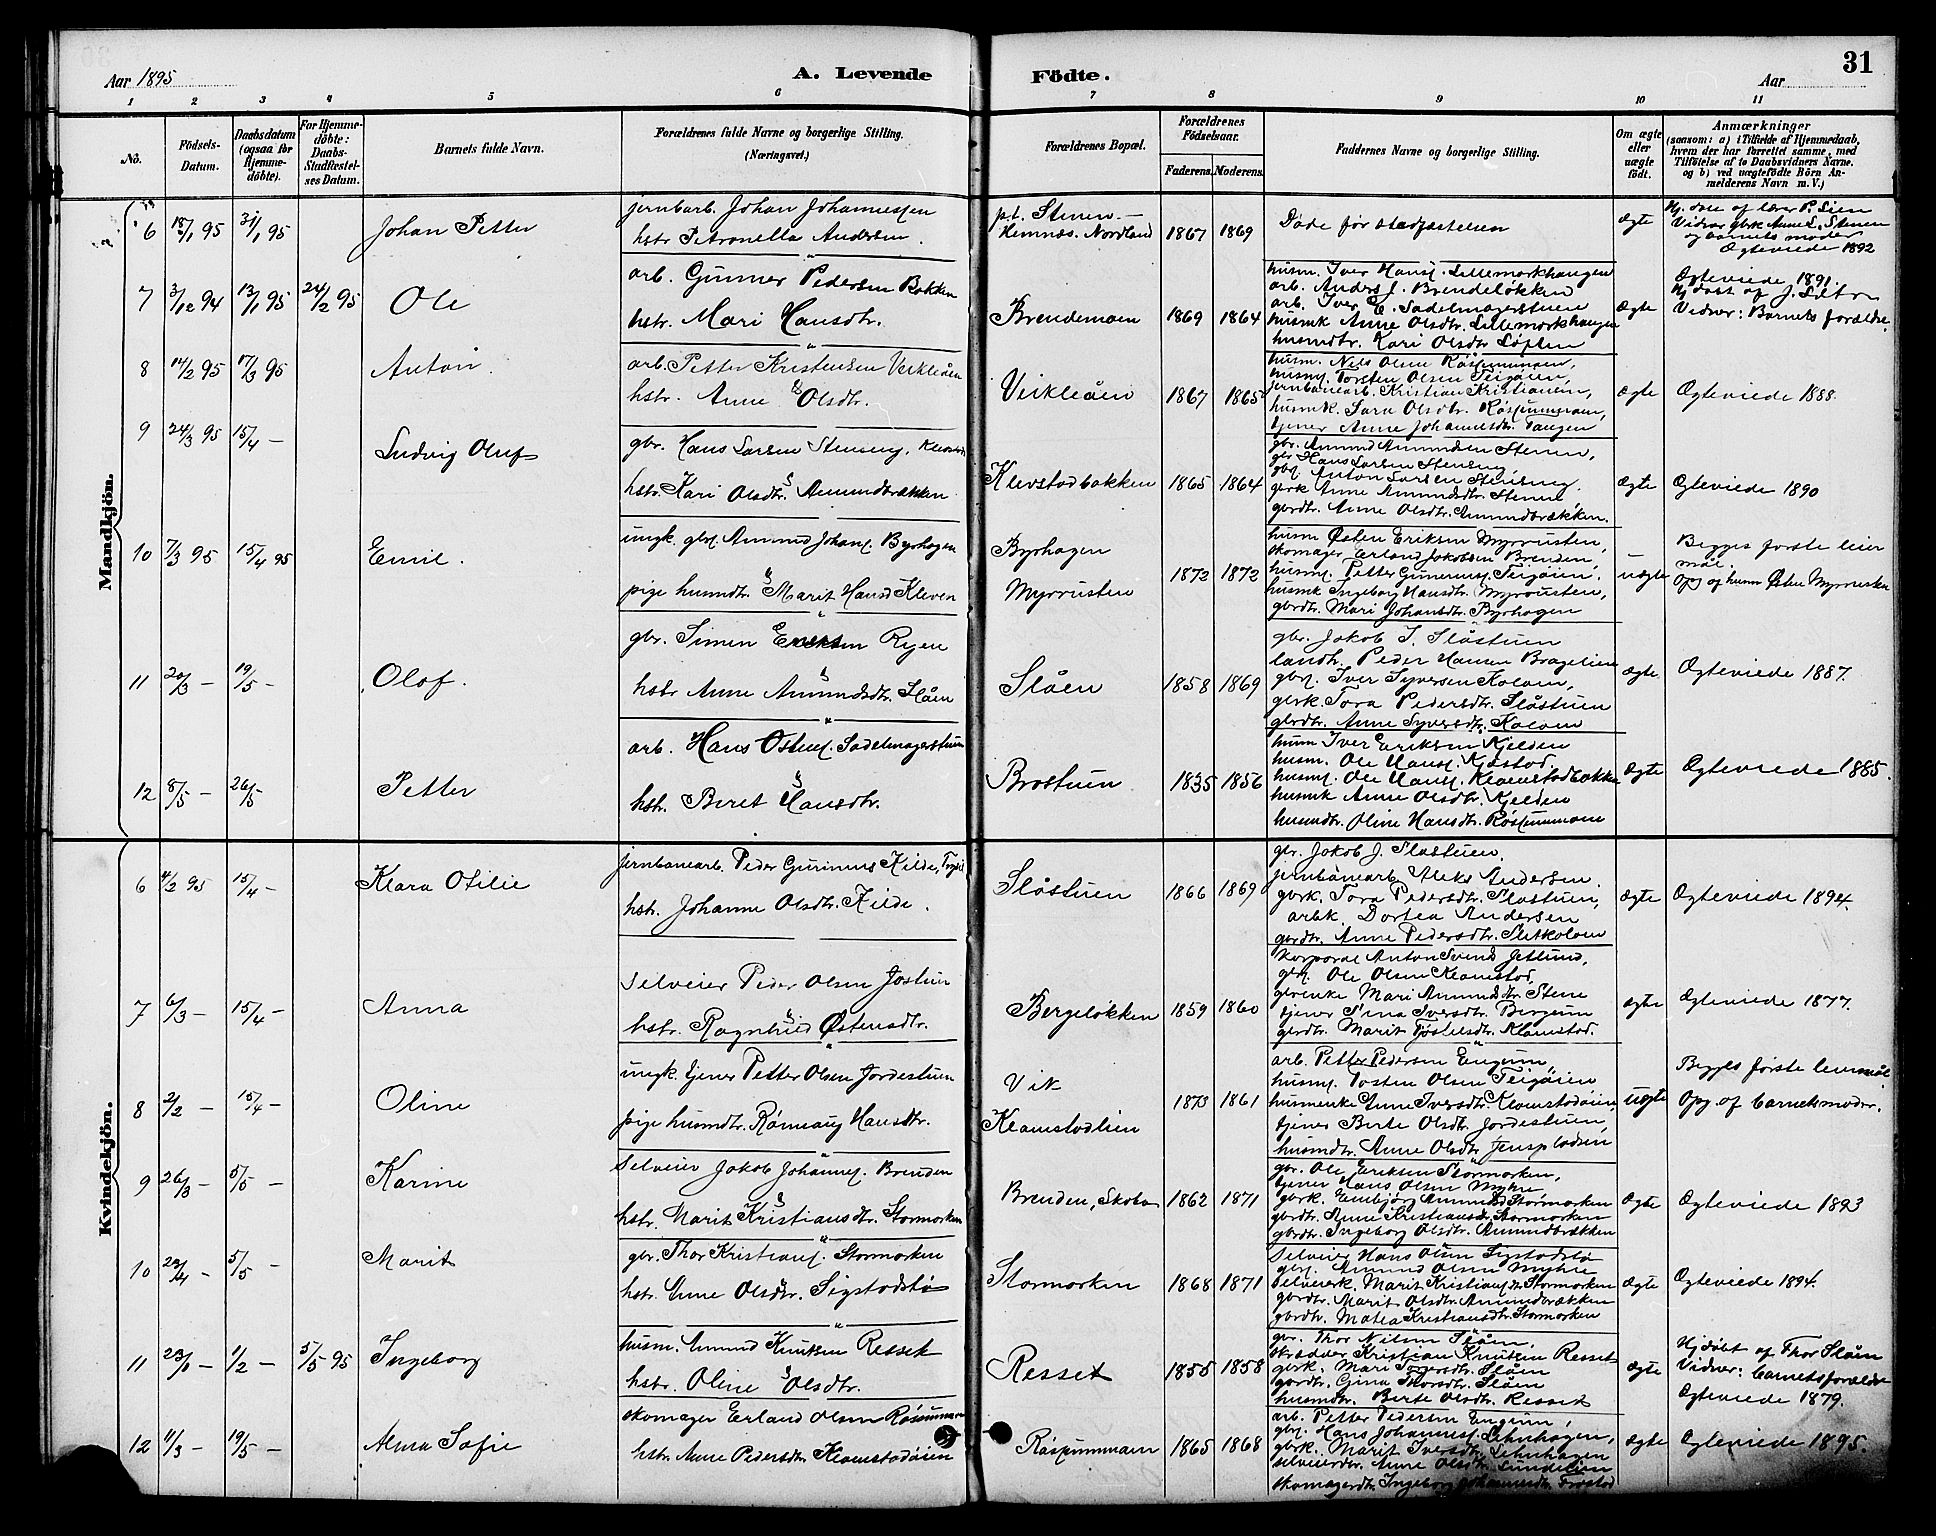 Aar 1895
A. Levende
Födte.
Aar
31
1 2 3 4 5 6 7 8 9 10 11
No.
Födsels-Datum.
Daabsdatum (ogsaa for Hjemme-döbte).
For Hjemme-döbte: Daabs-Stadfæstel-ses Datum.
Barnets fulde Navn.
Forældrenes fulde Navne og borgerlige Stilling.
(Næringsvei.)
Forældrenes Bopæl.
Forældrenes Födselsaar.
Faderens. Moderens.
Faddernes Navne og borgerlige Stilling.
Om ægte eller uægte födt.
Anmærkninger
(saasom: a) i Tilfælde af Hjemmedaab,
hvem der har forrettet samme, med
Tilföielse af to Daabsvidners Navne.
og b) ved uægtefödte Börn An-
melderens Navn m. V.)
Mandkjön.
6 18/1 95 31/1 95
Johan Petter
jernbarb. Johan Johannessen
hstr Petronella Andersen.
pt. Stenen –
Hemnæs. Nordland
1867 1869
Døde før stadfæstelsen
ægte
Hj. døbt af lærer P. Lien
Vidner gbrk Anne L. Stenen
og barnets moder
Ægteviede 1892
7 3/12 94 13/1 95 24/2 95
Ole
arb. Gunner Pedersen Bakken
hstr. Mari Hansdtr.
Brendemoen
1869 1864
husm. Iver Hans. Lillemorkhaugen
arb. Anders J. Brendeløkken
arb. Iver E. Sadelmagerstuen
husmk Anne Olsdtr. Lillemorkhaugen
husmdtr. Kari Olsdtr Løften
ægte
Ægteviede 1891.
Vidner: Barnets forældre.
8 14/2 95 17/3 95
Anton.
arb. Petter Kristensen Veikleåen
hstr. Anne Olsdtr.
Veikleåen
1867 1865
husm. Nils Olsen Røssummoen,
husms. Torsten Olsen Teigøien,
jernbanearb. Kristian Kristiansen,
husmk. Sara Olsdtr. Røssummoen,
tjener Anne Johannesdtr. Vangen
ægte
Ægteviede 1888.
9 24/3 95 15/4 –
Ludvig Oluf
gbr. Hans Larsen Stenseng,
hstr. Kari Olsdtr. Amundbrækken
Klevstadbakken
1865 1864
gbr. Amund Amundsen Stenen,
gbr Hans Larsen Stenseng
gbs. Anton Larsen Stenseng.
gbrk Anne Amundsdtr. Stenne
gbrdtr. Anne Olsdtr. Amundbrækken.
ægte
Ægteviede 1890
10 7/3 95 15/4 95
Emil.
ungk. gbs. Amund Johans. Byrhagen
pige husmdtr. Marit Hansd Kleven
Byrhagen
Myrrusten
1872 1872
husm Østen Eriksen Myrrusten,
skomager Erland Jakobsen Brenden,
husms. Petter Gunerius. Teigøien,
husmk Ingeborg Hansdtr. Myrrusten,
gbrdtr. Mari Johansdtr. Byrhagen
uægte
Begges første leier
mål.
Opg af husm Østen Myrrusten
11 20/3 – 19/5 –
Olaf.
gbr. Simen Eriksen Ryen
hstr Anne Amundsdtr. Slåen
Slåen
1858 1869
gbr. Jakob J. Slåstuen
landh. Peder Hansen Bragelien
gbs. Iver Syversen Koloen,
gbrk. Tora Pedersdtr. Slåstuen
gbrdtr. Anne Syversdtr. Koloen
ægte
Ægteviede 1887.
12 8/5 – 26/5
Petter
arb. Hans Østens. Sadelmagerstuen
hstr. Beret Hansdtr.
Brostuen
1835 1856
husm Iver Eriksen Kjelden
husm. Ole Hans. Kjøstad.
husms. Ole Hans. Kleomstadbakken
husmk Anne Olsdtr. Kjelden
husmdtr. Oline Hansdtr. Røssummoen
ægte
Ægteviede 1885.
Kvindekjön.
6 4/2 95 15/4 –
Klara Otilie
jernbanearb. Peder Gunnerius Kilde,
hstr. Johanne Olsdtr. Kilde.
Slåstuen
1866 1869
gbr. Jokob J. Slåstuen.
jernbanearb Aleks Andersen.
gbrk. Tora Pedersdtr. Slåstuen,
arbk. Dortea Andersen
gbrdtr. Anne Pedersdtr. Sletkoloen
ægte
Ægteviede 1894.
7 6/3 – 15/4 –
Anna
Selveier Peder Olsen Jostuen
hstr. Ragnhild Østensdtr.
Bergeløkken
1859 1860
Korporal Anton Svend Jetlund,
gbs. Ole Olsen Klomstad,
gbrenke Mari Amundsdtr. Stene
tjener Sina Iversdtr. Bergum
gbrdtr. Marit Tjøstelsdtr. Klomstad.
ægte
Ægteviede 1877.
8 2/2 – 15/4 –
Oline
ungk. tjener Petter Olsen Jordestuen
pige husmdtr. Rønnaug Hansdtr.
Vik
Klomstadlien
1873 1861
arb. Petter Pedersen Engum,
husms. Tosten Olsen Teigøien
husmenke Anne Iversdtr. Klomstadøien,
tjener Berte Olsdtr. Jordestuen,
husmdtr. Anne Olsdtr Jensplassen
uægte
Begges første leiermål
Opg af barnets moder.
9 26/3 – 5/5 –
Karine
Selveier Jakob Johannes. Brenden
hstr. Marit Kristiansdtr. Stormorken
Brenden, Skoba
1862 1871
gbr. Ole Eriksen Stormorken,
tjener Hans Olsen Myhre
gbrk. Embjørg Amundsd Stormorken
gbrdtr. Anne Kristiansdr Stormorken
gbrdtr. Ingeborg Olsdtr. Amundbrækken
ægte
Ægteviede 1893
10 23/4 – 5/5 –
Marit
gbr. Thor Kristians. Stormorken
hstr. Anne Olsdtr. Sigstadstø
Stormorken
1868 1871
Selveier Hans Olsen Sigstadstø
gbs. Amund Olsen Myhre
selveierk. Marit Kristians.dtr. Stormorken
gbrdtr. Marit Olsdtr. Amundbrækken
gbrdtr. Matea Kristiansdtr. Stormorken
ægte
Ægteviede 1894.
11 23/1 – 1/2 – 5/5 95
Ingeborg
husm. Amund Knutsen Resset
hstr. Oline Olsdtr.
Resset
1855 1858
gbr. Thor Nilsen Slåen
skrædder Kristian Knutsen Resset
gbrk. Mari Torgersdtr. Slåen
gbrdtr. Gina Thorsdtr. Slåen
husmdtr. Berte Olsdtr. Resset
ægte
Hj døbt af Thor Slåen
Vidner: barnets forældre
Ægteviede 1879.
12 11/3 – 19/5 –
Alma Sofie
skomager Erland Olsen Røssummoen
hstr. Anne Pedersdtr Klomstadøien
Røssummoen
1865 1868
arb. Petter Pedersen Engum,
gbs. Hans Johannes. Lehnhagen,
gbrk. Marit Iversdtr. Lehnhagen
selveierdtr. Anne Olsdtr. Sundelien
skomagerdtr. Ingeborg Johannesdtr.
ægte
Ægteviede 1895.